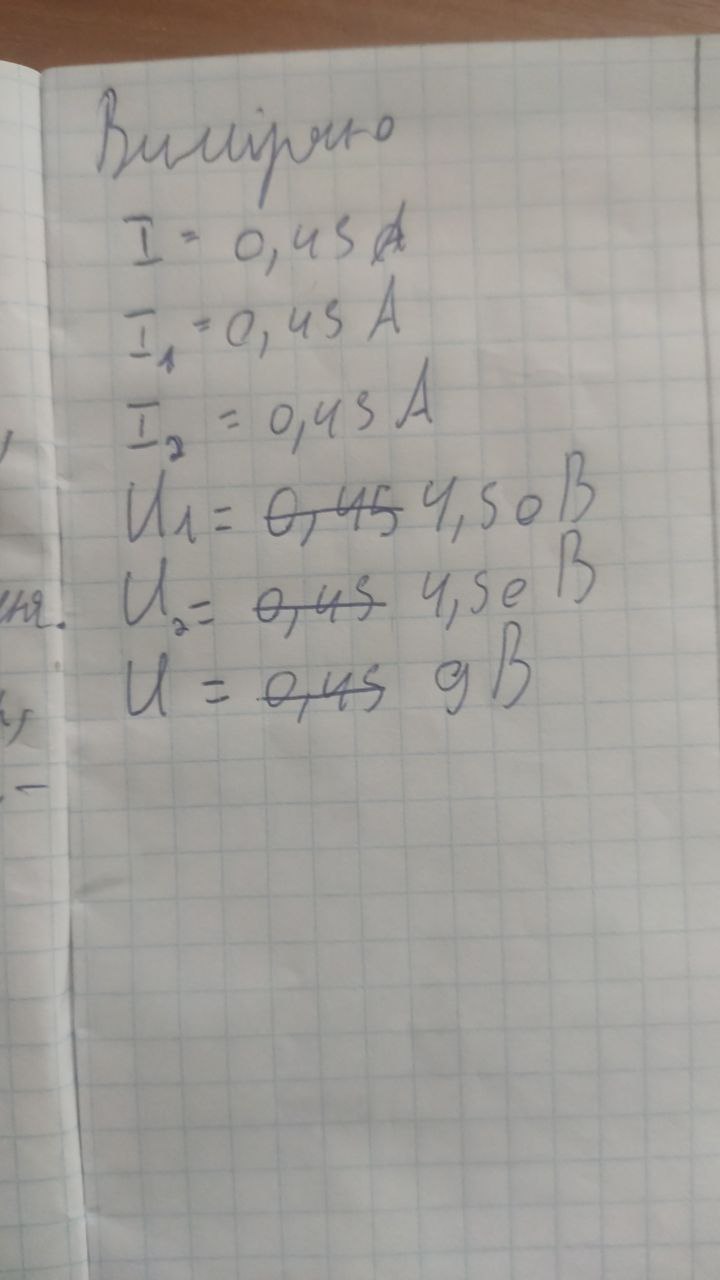 Виміряно
I = 0,45 A
I₁ = 0,45 A
I₂ = 0,45 A
U₁ = ~~0,45~~ 4,50 В
U₂ = ~~0,45~~ 4,50 В
U = ~~0,45~~ 9 В